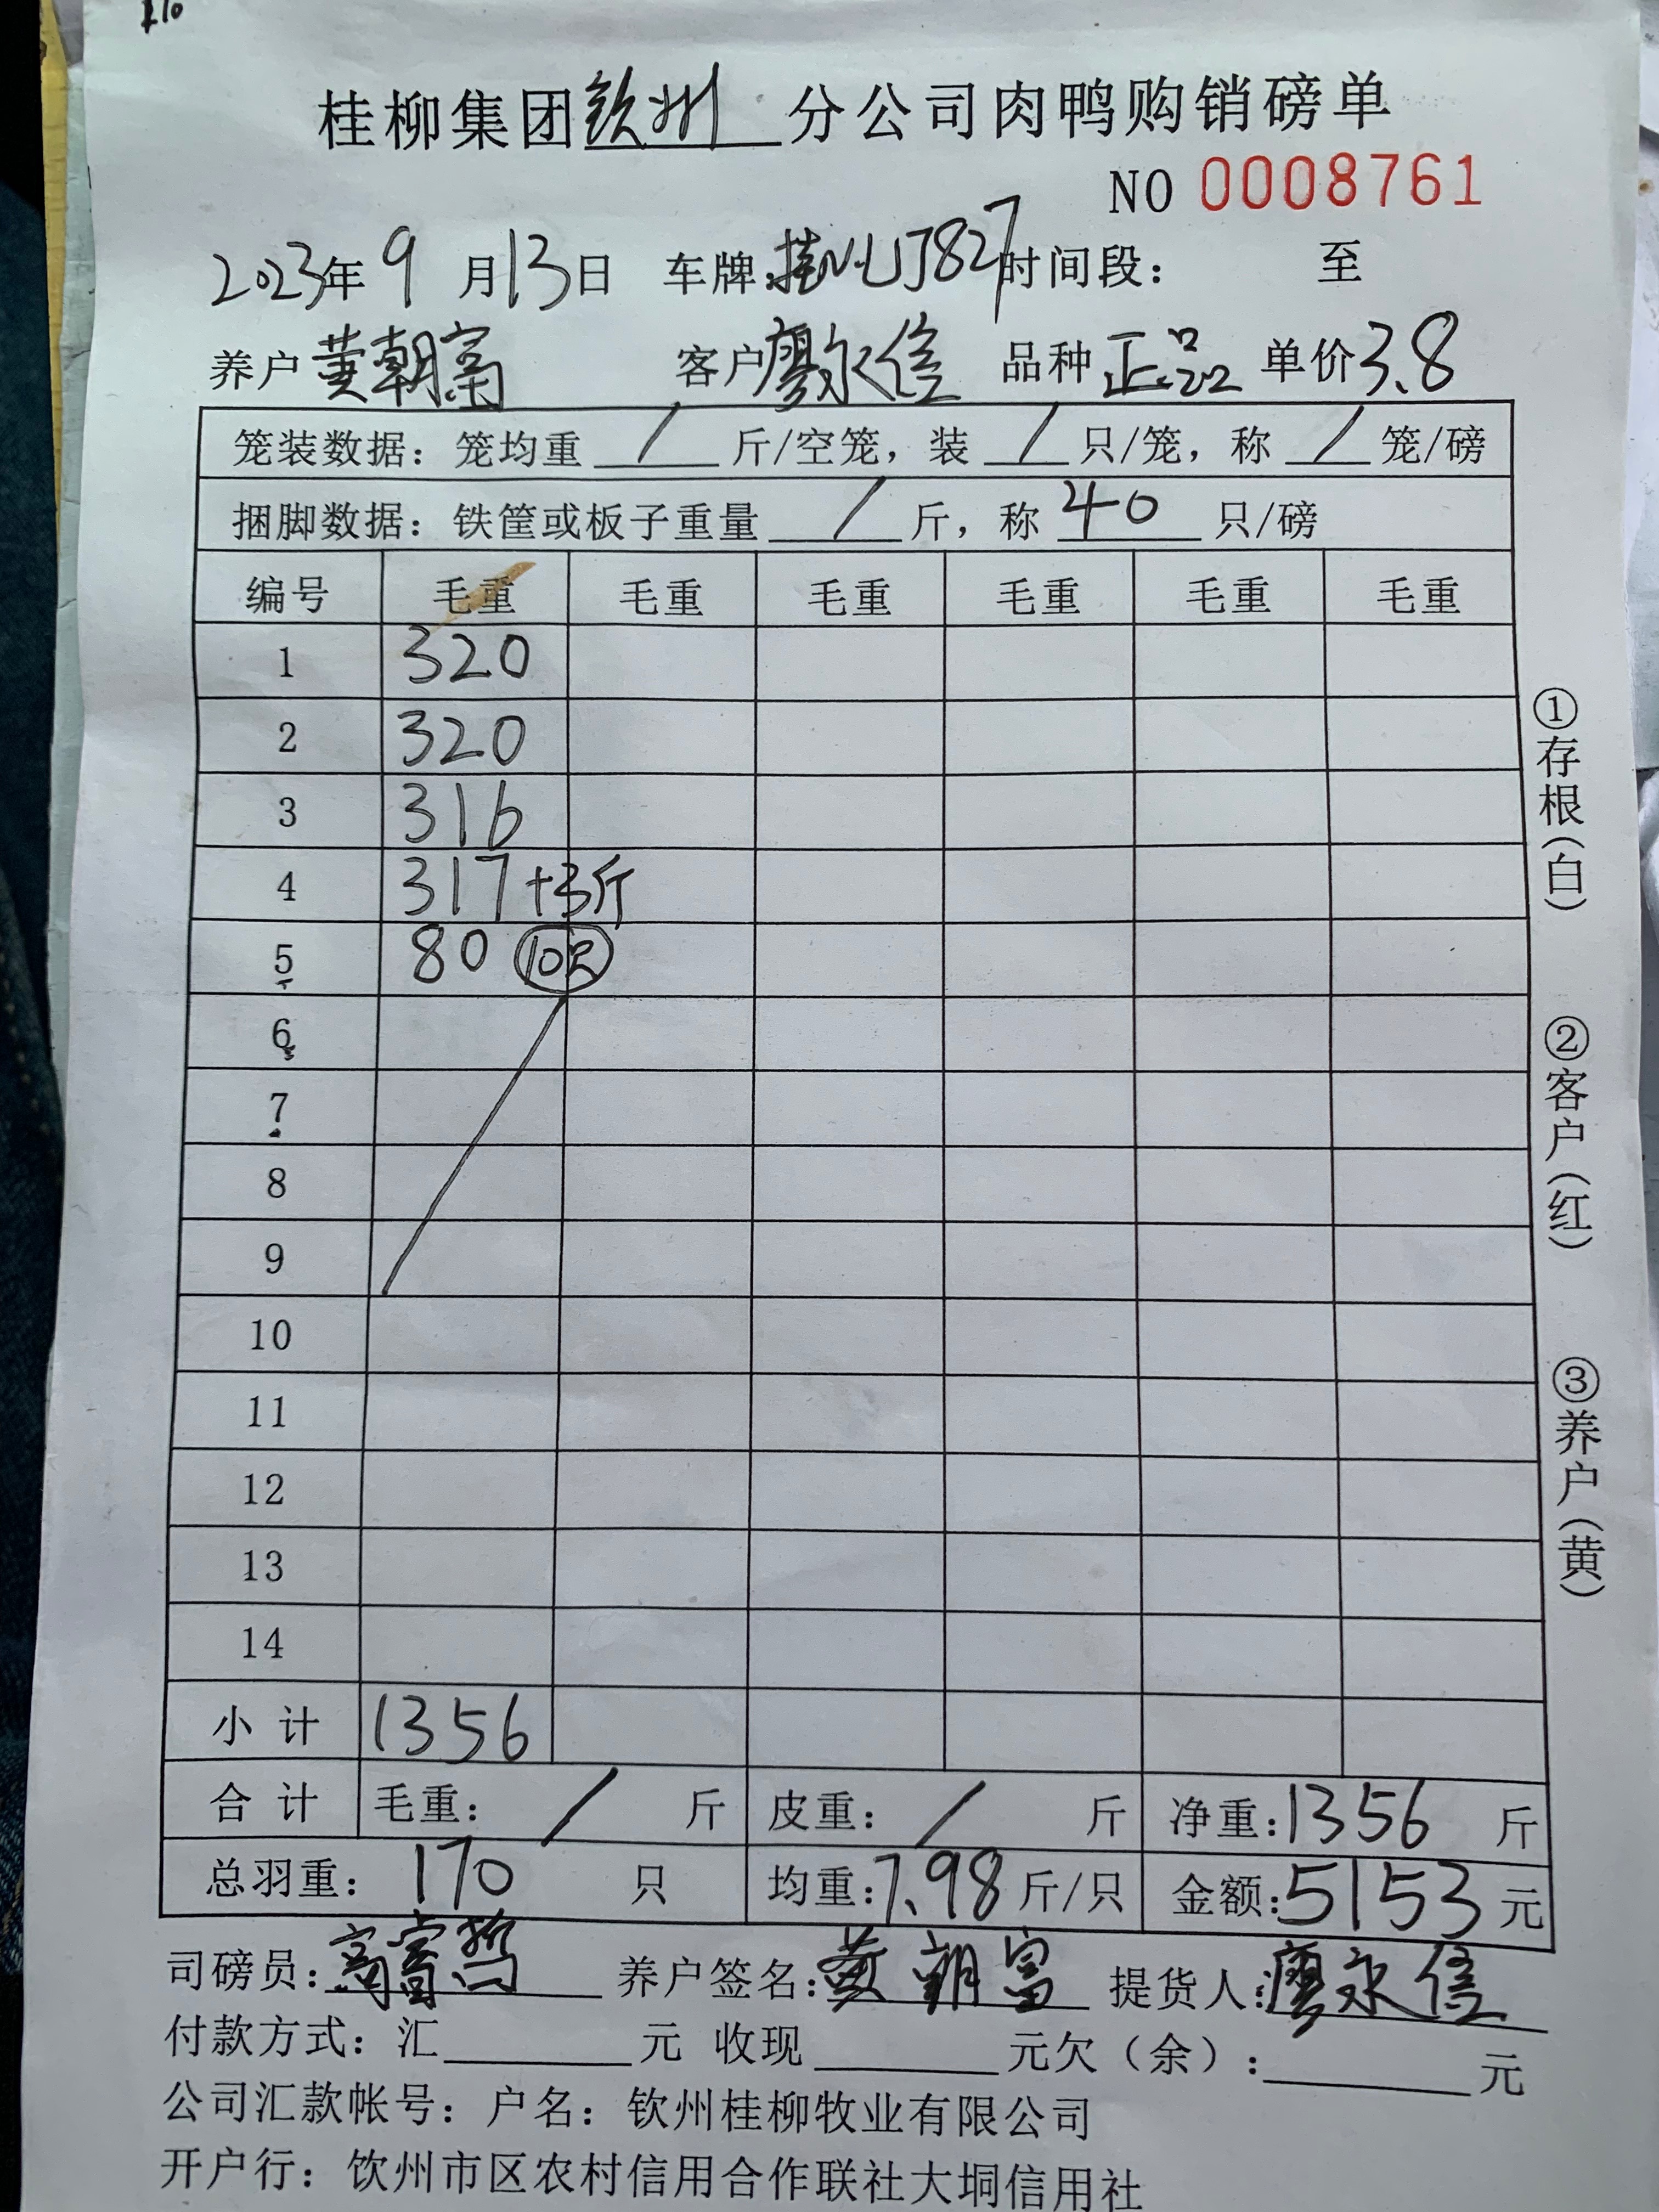 桂柳集团钦州分公司肉鸭购销磅单
NO 0008761
2023年9月13日 车牌:桂N·LJ827 时间段: 至
养户 黄朝富 客户 廖永信 品种 正品 单价 3.8
笼装数据: 笼均重 / 斤/空笼, 装 / 只/笼, 称 / 笼/磅
捆脚数据: 铁筐或板子重量 / 斤, 称 40 只/磅
编号 毛重 毛重 毛重 毛重 毛重 毛重
1 320
2 320
3 316
4 317+3斤
5 80 10只
6
7
8
9
10
11
12
13
14
小计 1356
合计 毛重: / 斤 皮重: / 斤 净重:1356 斤
总羽重: 170 只 均重:7.98 斤/只 金额:5153 元
司磅员: 养户签名:黄朝富 提货人:廖永信
付款方式: 汇 元 收现 元欠(余): 元
公司汇款帐号: 户名: 钦州桂柳牧业有限公司
开户行: 钦州市区农村信用合作联社大垌信用社
①存根(白)
②客户(红)
③养户(黄)